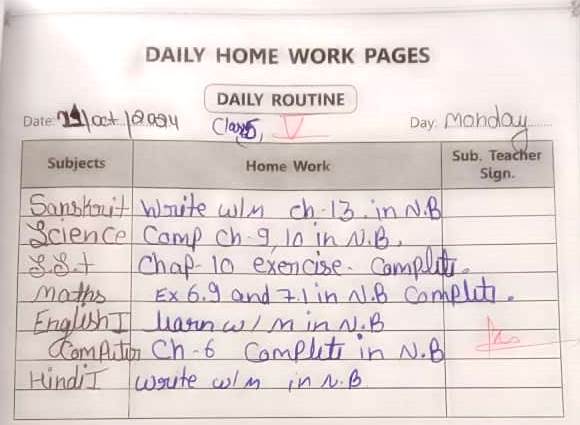 DAILY HOME WORK PAGES
DAILY ROUTINE
Date: 21/oct/2024 Class 5, V Day: Monday
Subjects Home Work Sub. Teacher Sign.
Sanskrit Write w/m ch-13. in N.B
Science Comp Ch-9, 10 in N.B.
S.S.t Chap-10 exencise. Complete.
Maths Ex 6.9 and 7.1 in N.B Complete.
English I learn w/m in N.B
Computer Ch-6 Complete in N.B
Hindi I write w/m in N.B